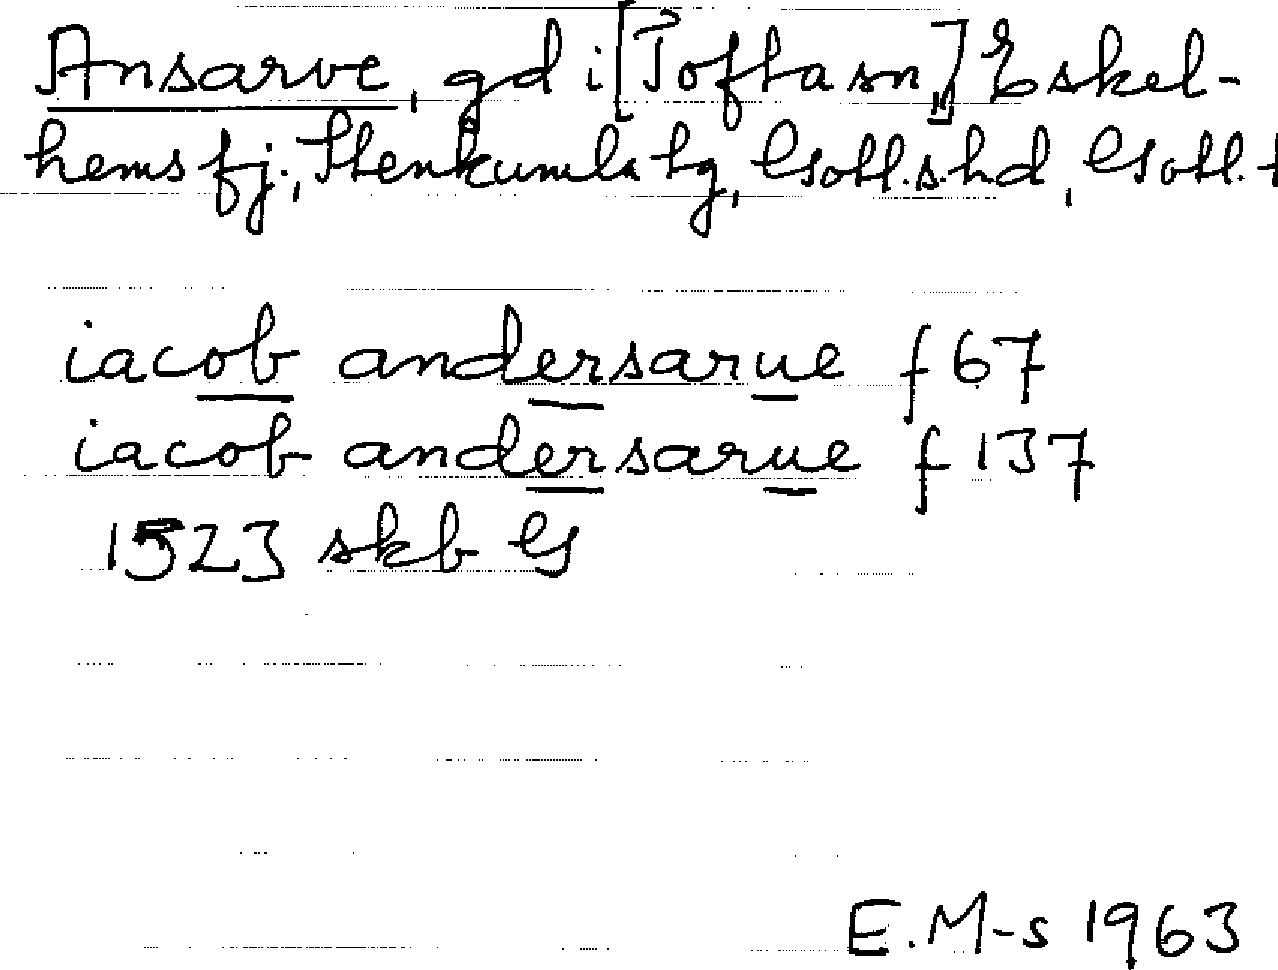 Ansarve, gd i [Tofta sn,] Eskel-
hems fj., Stenkumla tg, Gotl.s.hd, Gotl. l
iacob andersarue f 67
iacob andersarue f 137
1523 skb G
E.M-s 1963